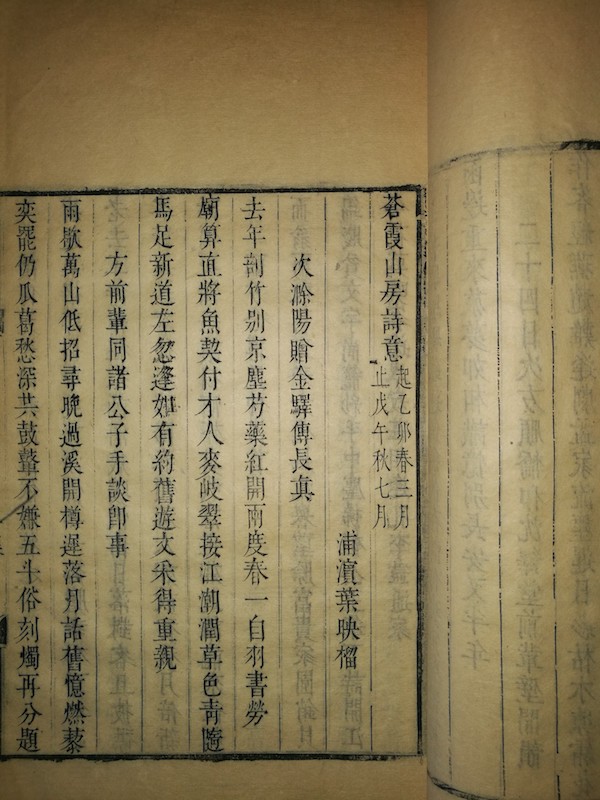 蒼霞山房詩意
起乙卯春三月
止戊午秋七月
浦濵葉映榴
次滁陽贈金驛傳長真
去年剖竹别京塵芍藥紅開兩度春一自羽書勞
廟算直將魚契付才人麥岐翠接江潮潤草色青隨
馬足新道左忽逢如有約舊遊文采得重親
方前輩同諸公子手談卽事
雨歇萬山低招尋晚過溪開樽遲落月話舊憶燃藜
奕罷仍瓜葛愁深共鼓鼙不嫌五斗俗刻燭再分題